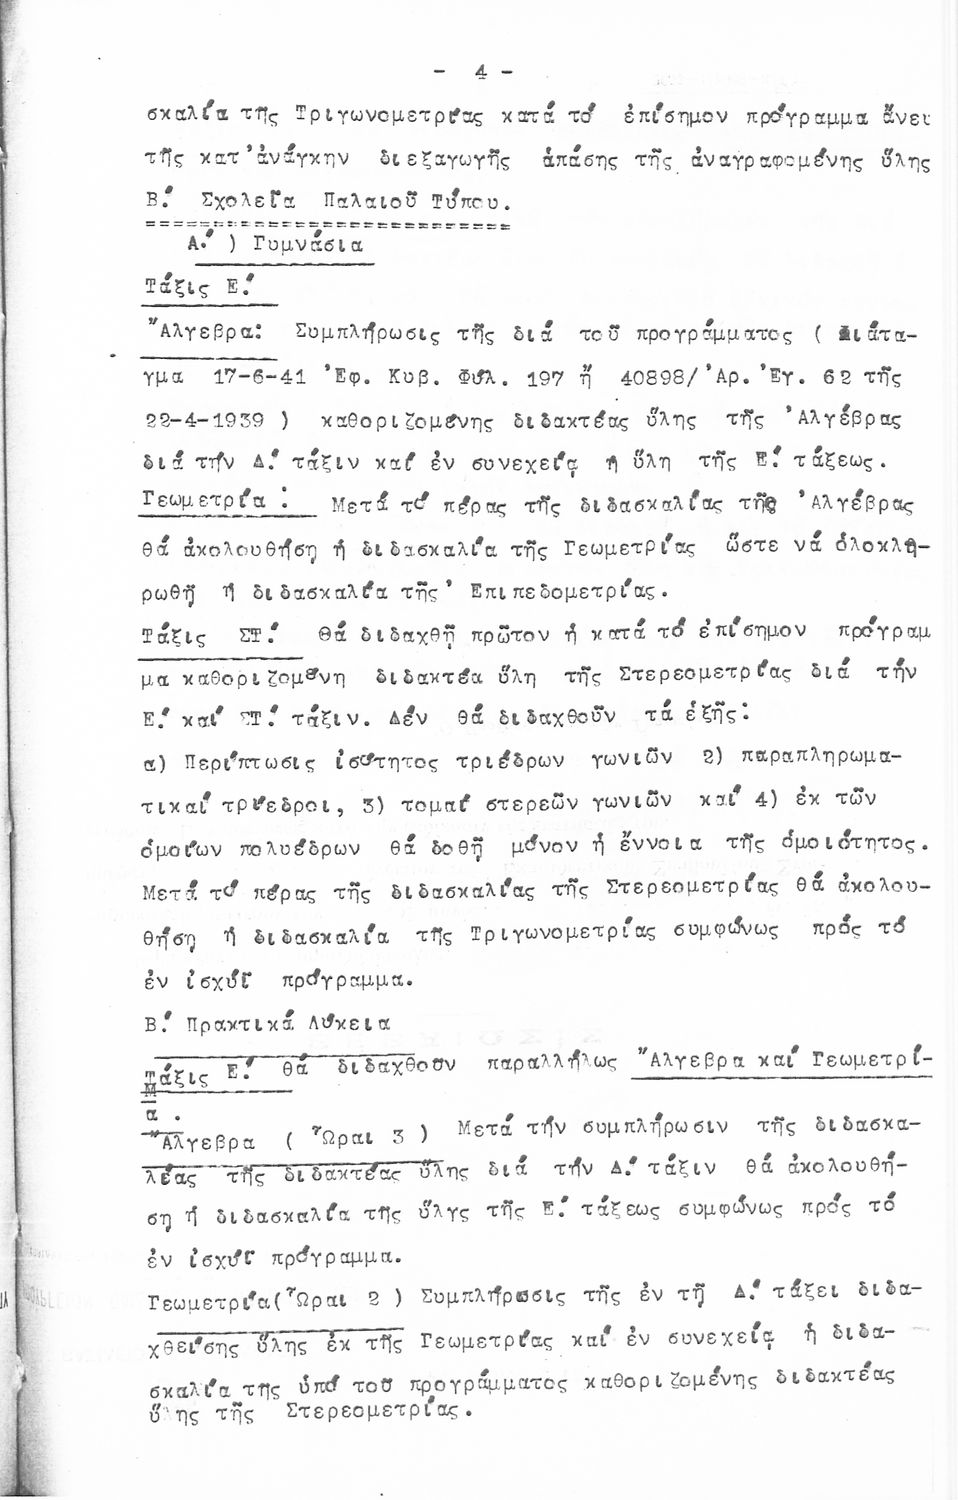 - 4 -
σκαλία τῆς Τριγωνομετρίας κατά τό ἐπίσημον πρόγραμμα ἄνευ
τῆς κατ'ἀνάγκην διεξαγωγῆς ἁπάσης τῆς ἀναγραφομένης ὕλης
Β.' Σχολεῖα Παλαιοῦ Τύπου.
Α.' ) Γυμνάσια
Τάξις Ε.'
"Αλγεβρα: Συμπλήρωσις τῆς διά τοῦ προγράμματος ( Διάτα-
γμα 17-6-41 'Εφ. Κυβ. Φύλ. 197 ἤ 40898/'Αρ.'Εγ. 62 τῆς
22-4-1939 ) καθοριζομένης διδακτέας ὕλης τῆς 'Αλγέβρας
διά τήν Δ.' τάξιν καί ἐν συνεχείᾳ ἡ ὕλη τῆς Ε.' τάξεως.
Γεωμετρία : Μετά τό πέρας τῆς διδασκαλίας τῆς 'Αλγέβρας
θά ἀκολουθήσῃ ἡ διδασκαλία τῆς Γεωμετρίας ὥστε νά ὁλοκλη-
ρωθῇ ἡ διδασκαλία τῆς' Επιπεδομετρίας.
Τάξις ΣΤ.' Θά διδαχθῇ πρῶτον ἡ κατά τό ἐπίσημον πρόγραμ
μα καθοριζομένη διδακτέα ὕλη τῆς Στερεομετρίας διά τήν
Ε.' καί ΣΤ.' τάξιν. Δέν θά διδαχθοῦν τά ἑξῆς:
α) Περίπτωσις ἰσότητος τριέδρων γωνιῶν 2) παραπληρωμα-
τικαί τρίεδροι, 3) τομαί στερεῶν γωνιῶν καί 4) ἐκ τῶν
ὁμοίων πολυέδρων θά δοθῇ μόνον ἡ ἔννοια τῆς ὁμοιότητος.
Μετά τό πέρας τῆς διδασκαλίας τῆς Στερεομετρίας θά ἀκολου-
θήσῃ ἡ διδασκαλία τῆς Τριγωνομετρίας συμφώνως πρός τό
ἐν ἰσχύϊ πρόγραμμα.
Β.' Πρακτικά Λύκεια
Τάξις Ε.' θά διδαχθοῦν παραλλήλως "Αλγεβρα καί Γεωμετρί-
α .
"Αλγεβρα ( Ὧραι 3 ) Μετά τήν συμπλήρωσιν τῆς διδασκα-
λίας τῆς διδακτέας ὕλης διά τήν Δ.' τάξιν θά ἀκολουθή-
σῃ ἡ διδασκαλία τῆς ὕλγς τῆς Ε.' τάξεως συμφώνως πρός τό
ἐν ἰσχύϊ πρόγραμμα.
Γεωμετρία( Ὧραι 2 ) Συμπλήρωσις τῆς ἐν τῇ Δ.' τάξει διδα-
χθείσης ὕλης ἐκ τῆς Γεωμετρίας καί ἐν συνεχείᾳ ἡ διδα-
σκαλία τῆς ὑπό τοῦ προγράμματος καθοριζομένης διδακτέας
ὕλης τῆς Στερεομετρίας.